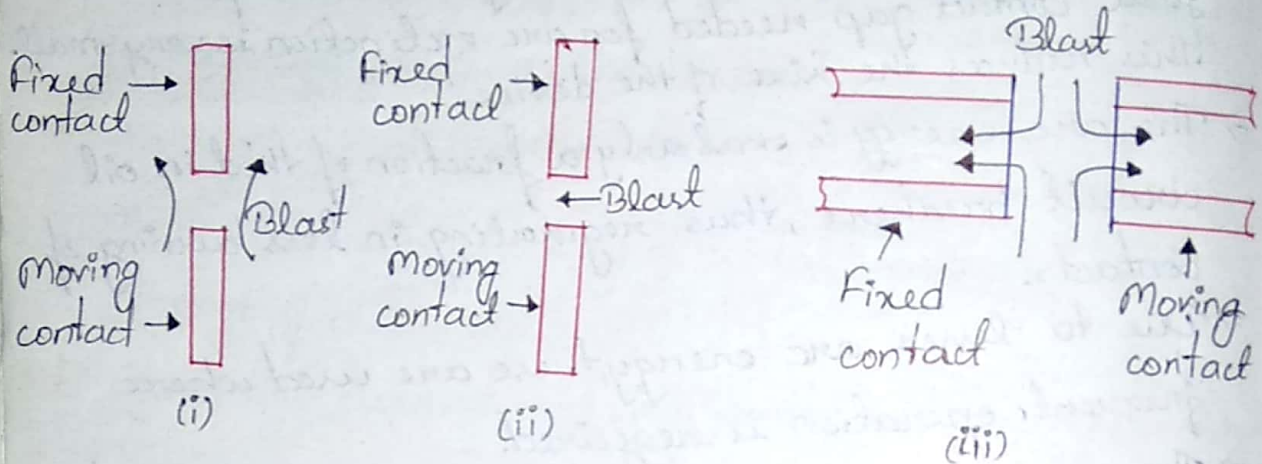 Fixed
contact
Blast
Moving
contact
(i)
Fixed
contact
Blast
Moving
contact
(ii)
Blast
Fixed
contact
Moving
contact
(iii)